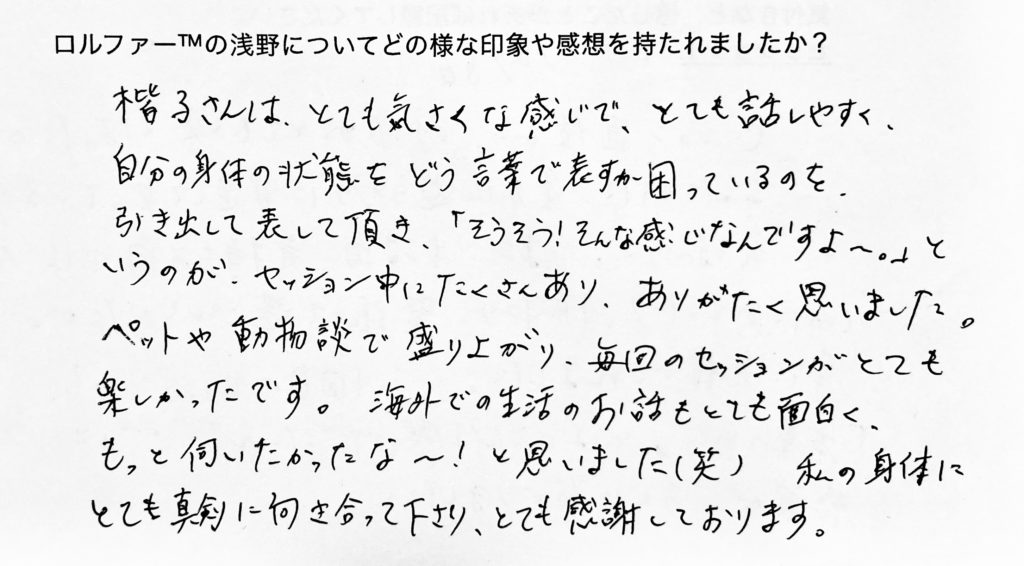 ロルファー™の浅野についてどの様な印象や感想を持たれましたか？
楷子さんは、とても気さくな感じで、とても話しやすく、
自分の身体の状態をどう言葉で表すか困っているのを、
引き出して表して頂き、「そうそう！そんな感じなんですよ〜。」と
いうのが、セッション中にたくさんあり、ありがたく思いました。
ペットや動物談で盛り上がり、毎回のセッションがとても
楽しかったです。海外での生活のお話もとても面白く、
もっと伺いたかったな〜！と思いました（笑） 私の身体に
とても真剣に向き合って下さり、とても感謝しております。